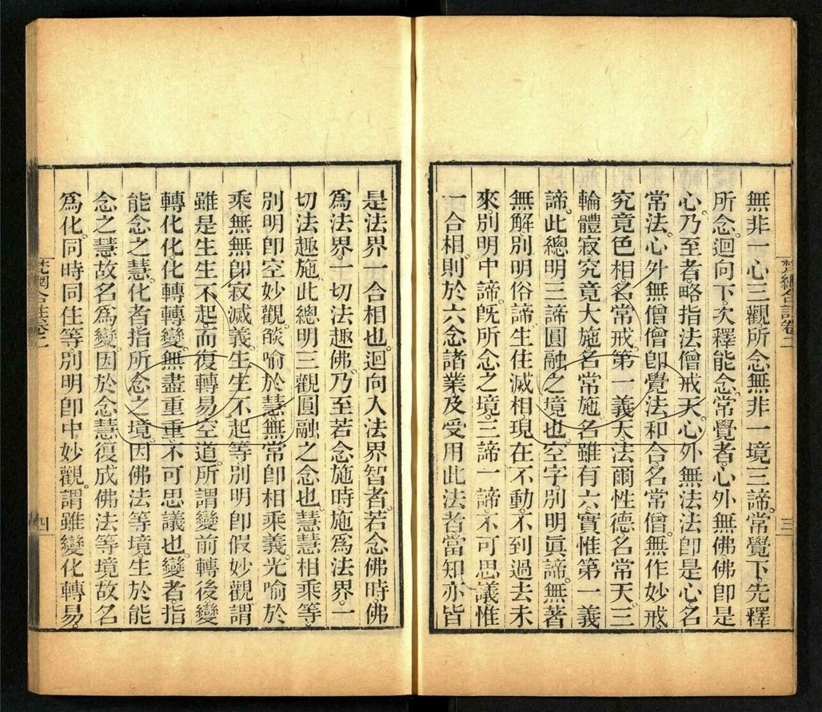 梵網合註卷二
三
無非一心三觀所念無非一境三諦。常覺下。先釋
所念。迴向下。次釋能念。常覺者。心外無佛佛即是
心。乃至者略指法僧戒天。心外無法法即是心名
常法。心外無僧僧即覺法和合名常僧。無作妙戒。
究竟色相名常戒。第一義天。法爾性德名常天。三
輪體寂究竟大施名常施名雖有六實惟第一義
諦。此總明三諦圓融之境也。空字別明眞諦。無著
無解別明俗諦生住滅相現在不動。不到過去未
來別明中諦。旣所念之境。三諦一諦不可思議。惟
一合相。則於六念諸業及受用此法者當知亦皆
是法界一合相也。迴向入法界智者。若念佛時佛
爲法界。一切法趣佛。乃至若念施時施爲法界。一
切法趣施此總明三觀圓融之念也。慧慧相乘等。
別明即空妙觀。燄喻於慧無常即相乘義光喻於
乘無無即寂滅義生生不起等別明即假妙觀。謂
雖是生生不起。而復轉易空道。所謂變前轉後變
轉化化化轉轉變。無盡重重不可思議也。變者指
能念之慧化者指所念之境。因佛法等境生於能
念之慧故名爲變因於念慧復成佛法等境故名
爲化。同時同住等別明即中妙觀。謂雖變化轉易。
梵網合註卷二
四